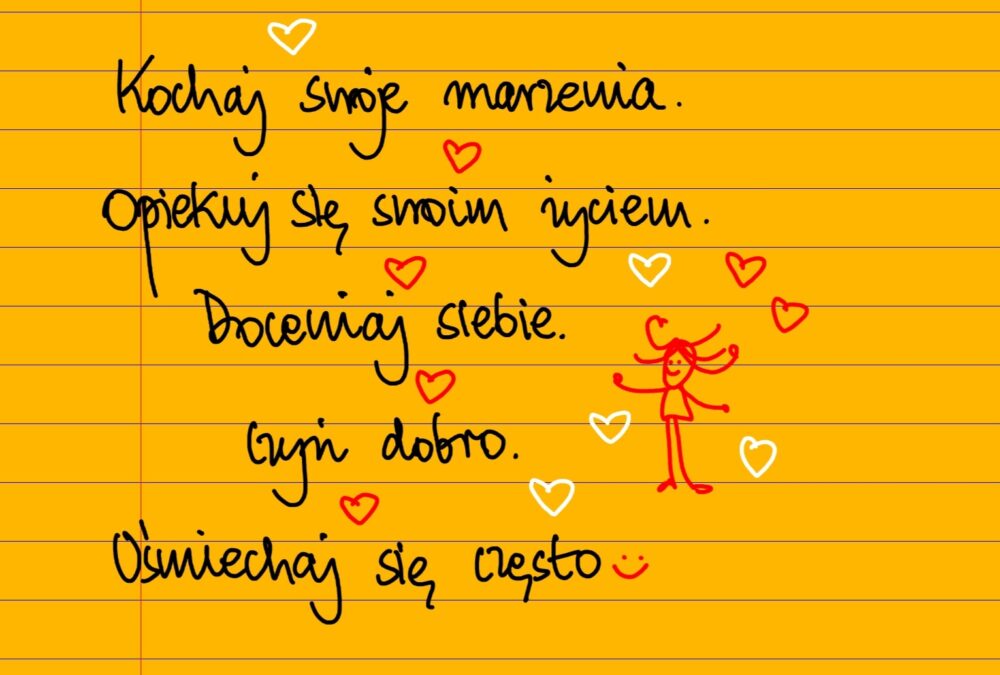 Kochaj swoje marzenia.
Opiekuj się swoim życiem.
Doceniaj siebie.
Czyń dobro.
Uśmiechaj się często